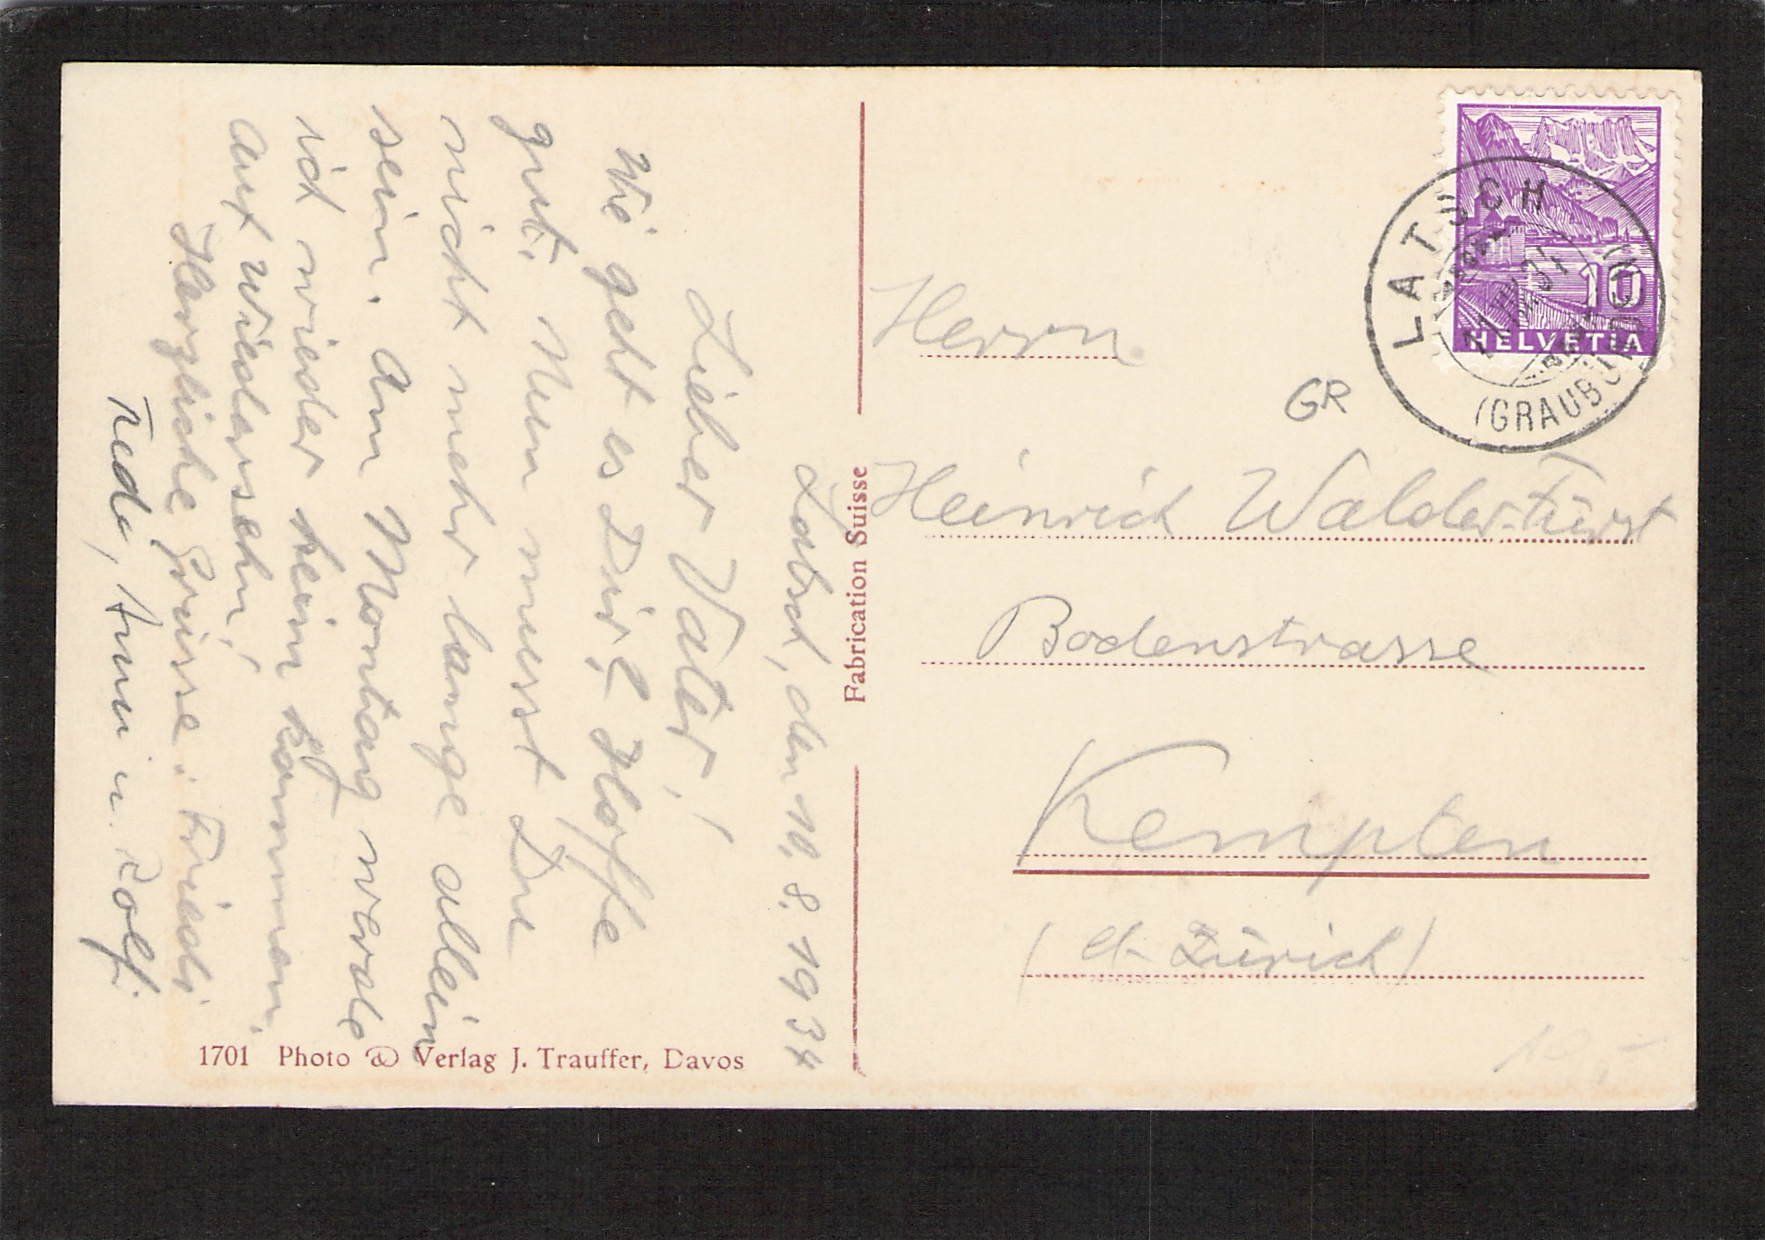 Latsch, den 10. 8. 1934
Lieber Vater!
Wie geht es Dir? Hoffe
gut. Nun musst Du
nicht mehr lange allein
sein. Am Montag werde
ich wieder heim kommen.
Auf Wiedersehn!
Herzliche Grüsse: Friedi
Anni u. Rolf.
1701 Photo & Verlag J. Trauffer, Davos
Fabrication Suisse
Herrn
Heinrich Walder-Fürst
Bodenstrasse
Kempten
(Kt. Zürich)
GR
LATSCH
(GRAUBÜNDEN)
10
HELVETIA
10.-